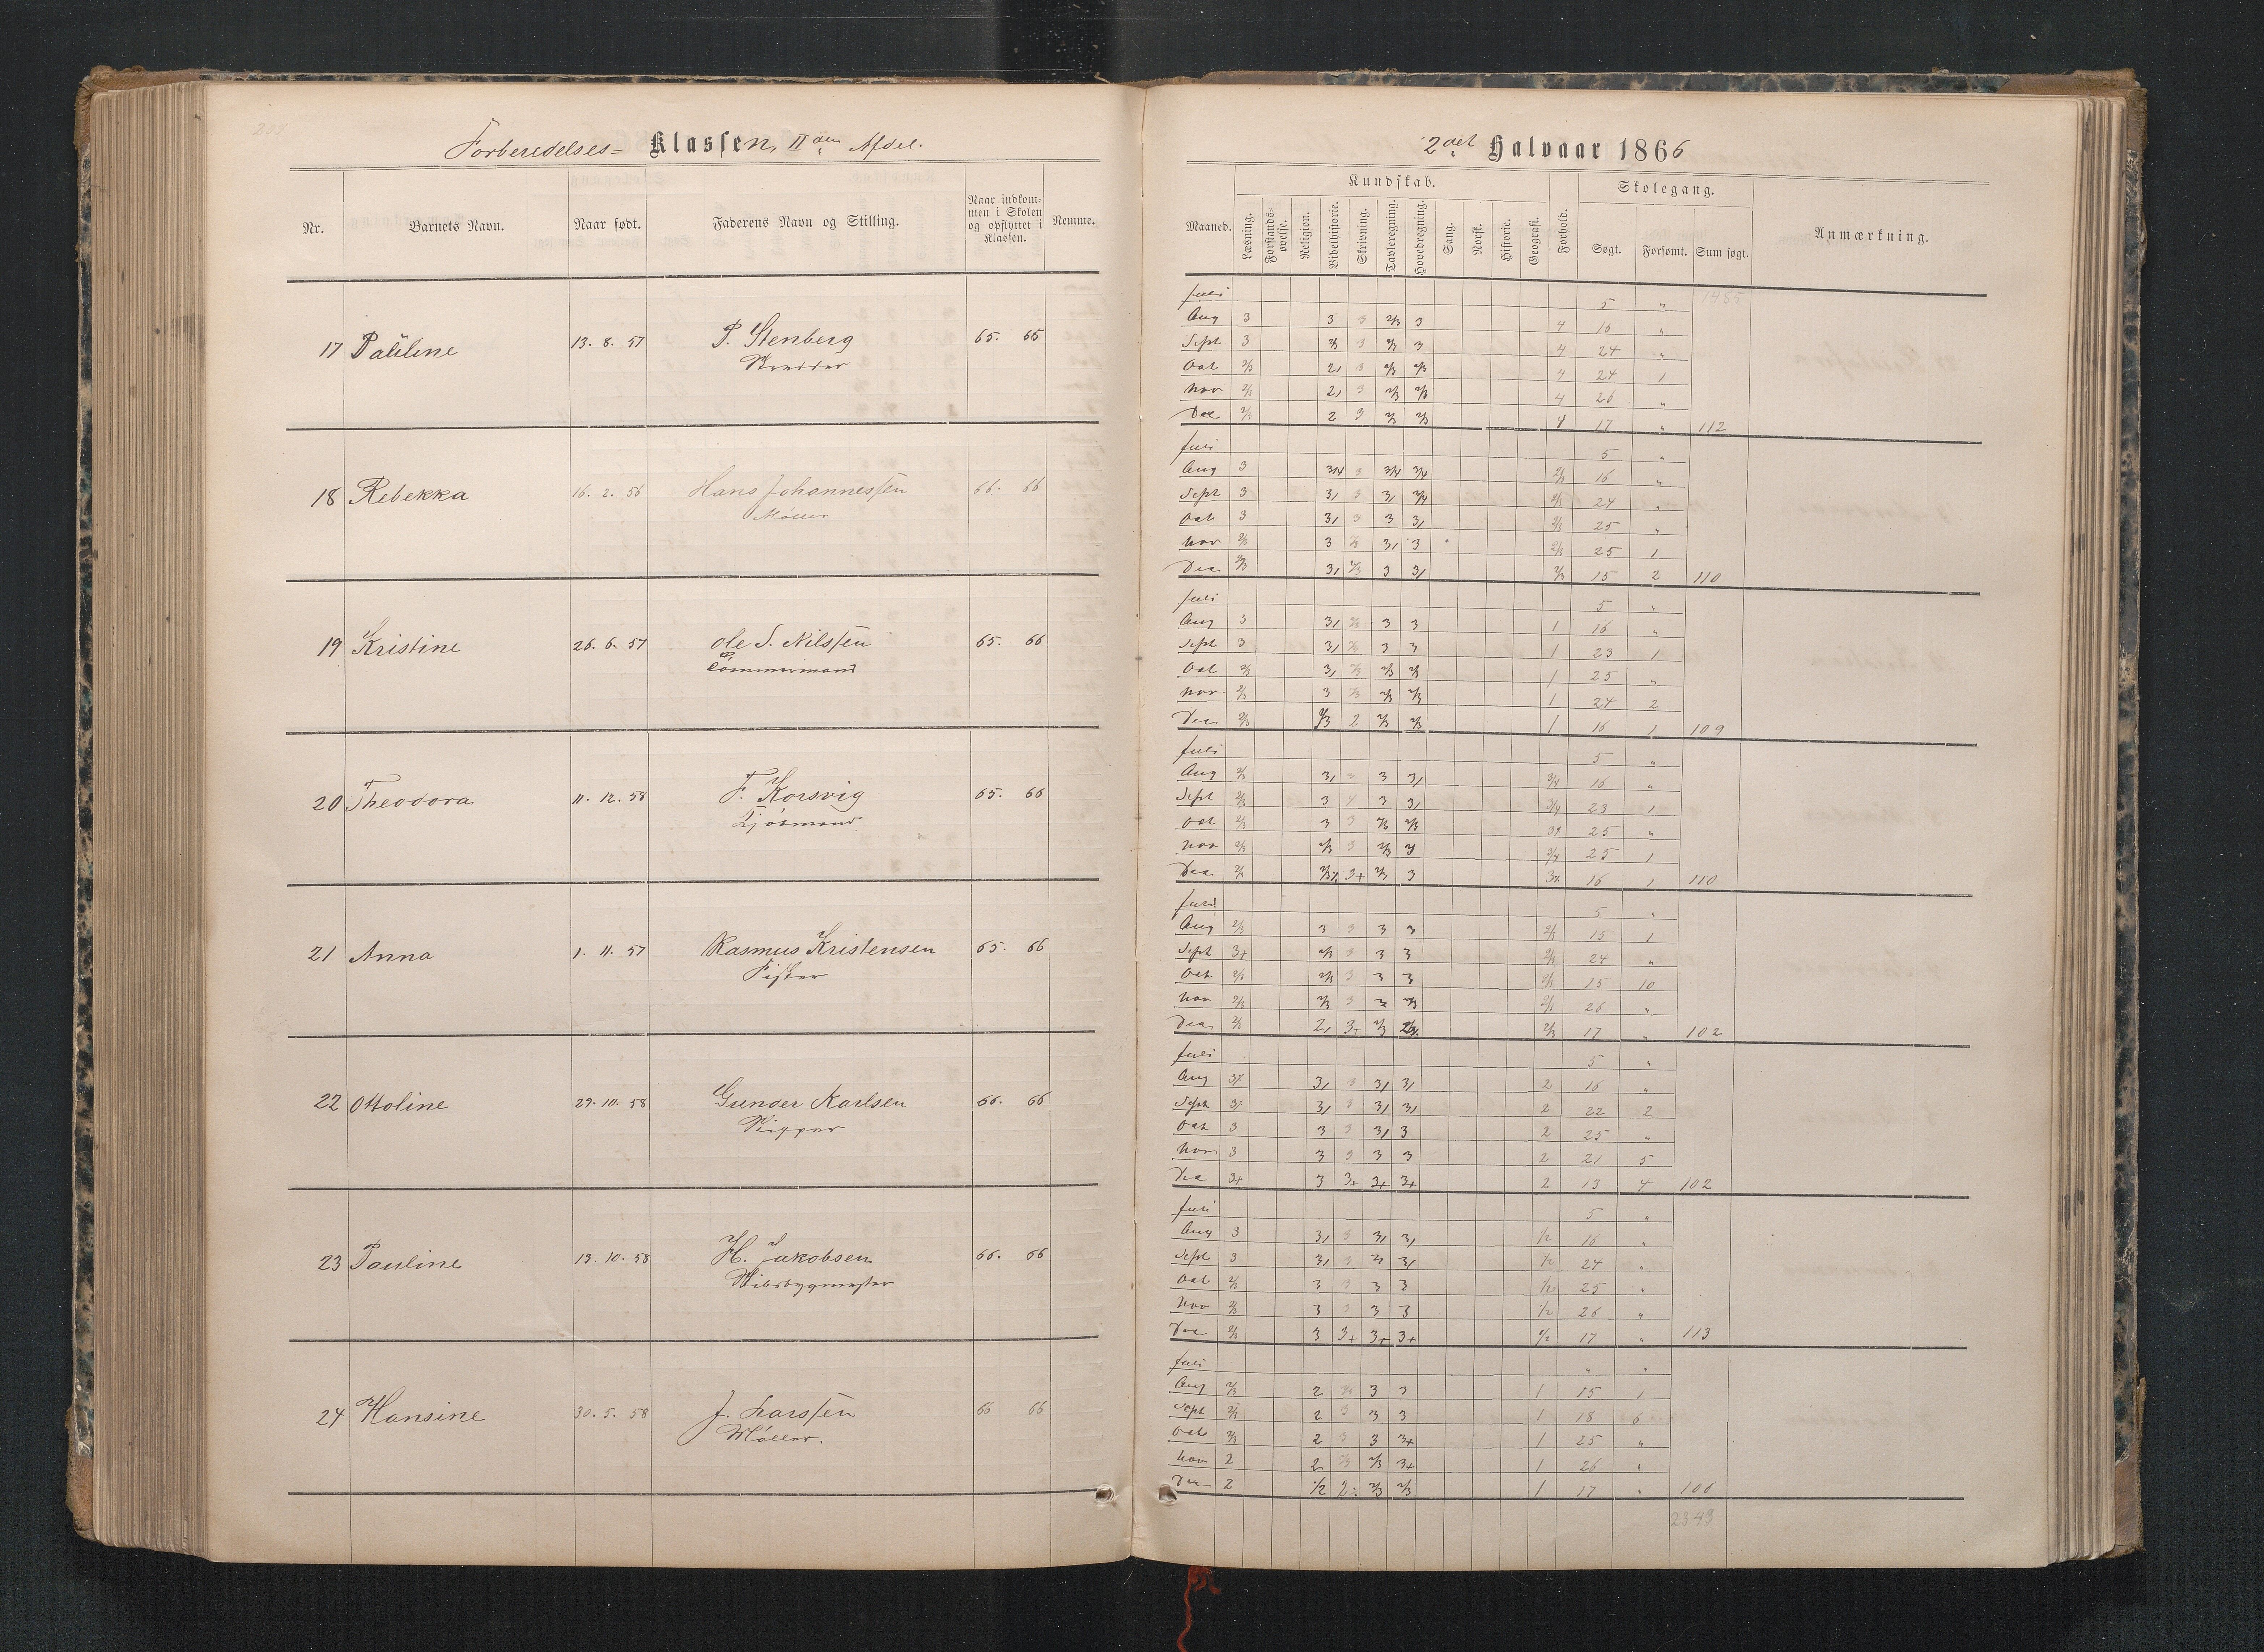 Forberedelses= Klassen, IIden Afdel.
Nr. Barnets Navn. Naar født. Faderens Navn og Stilling. Naar indkommen i Skolen og opflyttet i Klassen. Nemme.
17 Pauline 13. 8. 57 P. Stenberg 65. 65
18 Rebekka 16. 2. 56 Hans Johannessen 66. 66
Møller
19 Kristine 26. 6. 57 Ole S. Nilssen 65. 66
Tømmermand
20 Theodora 11. 12. 58 F. Korsvig 65. 66
21 Anna 1. 11. 57 Rasmus Kristensen 65. 66
Fisker
22 Ottoline 29. 10. 58 Gunder Karlsen 66. 66
23 Pauline 13. 10. 58 H. Jakobsen 66. 66
24 Hansine 30. 5. 58 J. Larssen 66 66
Møller.
2det Halvaar 1866
Maaned. Kundskab. Forhold. Skolegang. Anmærkning.
Læsning. Forstandsøvelse. Religion. Bibelhistorie. Skrivning. Tavleregning. Hovedregning. Sang. Norsk. Historie. Geografi. Søgt. Forsømt. Sum søgt.
Juli 5 " 1485
Aug 3 3 3 2/3 3 4 16 "
Sept 3 3 3 4 24 "
Oct 2/3 2, 3 2/3 2/3 4 24 1
Nov 2/3 2, 3 2/3 2/3 4 26 "
Dec 2/3 2 3 2/3 2/3 4 17 " 112
Juli 5 "
Aug 3 3/4 3 3/4 3/4 2/3 16 "
Sept 3 3, 3 3, 3/4 2/3 24 "
Oct 3 3, 3 3 3, 2/3 25 "
Nov 2/3 3 2/3 3, 3 2/3 25 1
Dec 2/3 3, 2/3 3 3, 2/3 15 2 110
Juli 5 "
Aug 3 3, 2/3 3 3 1 16 "
Sept 3 3, 2/3 3 3 1 23 1
Oct 2/3 3, 2/3 2/3 2/3 1 25 "
Nov 2/3 3 2/3 2/3 2/3 1 24 2
Dec 2/3 2 2/3 2/3 1 16 1 109
Juli 5 "
Aug 2/3 3, 3 3 3, 3/4 16 "
Sept 2/3 3 4 3 3, 3/4 23 1
Oct 2/3 3 3 2/3 2/3 25 "
Nov 2/3 2/3 3 2/3 3 3/4 25 1
Dec 2/3 3+ 2/3 3 16 1 110
Juli 5 "
Aug 2/3 3 3 3 3 2/3 15 1
Sept 3+ 2/3 3 3 3 2/3 24 "
Oct 2/3 2/3 3 3 3 2/3 15 10
Nov 2/3 2/3 3 3 2/3 2/3 26 "
Dec 2/3 2, 3, 2/3 2/3 17 " 102
Juli 5 "
Aug 3, 3 3, 3, 2 16 "
Sept 3, 3 3, 3, 2 22 2
Oct 3 3 3 3, 3 2 25 "
Nov 3 3 3 3 3 2 21 5
Dec 3+ 3 3+ 3+ 3+ 2 13 4 102
Juli 5 "
Aug 3 3, 3 3, 3, 1/2 16 "
Sept 3 3, 3 3 3, 1/2 24 "
Oct 2/3 3 3 3 3 1/2 25 "
Nov 2/3 3 3 3 3 1/2 26 "
Dec 2/3 3 3+ 3+ 3+ 1/2 17 " 113
Juli " "
Aug 2/3 2 3 3 1 15 1
Sept 2/3 2 3 3 3 1 18 6
Oct 2/3 2 3 3 3+ 1 25 "
Nov 2 2 2/3 2/3 3+ 1 26 "
Dec 2 1/2 2/3 2/3 1 17 "
2343